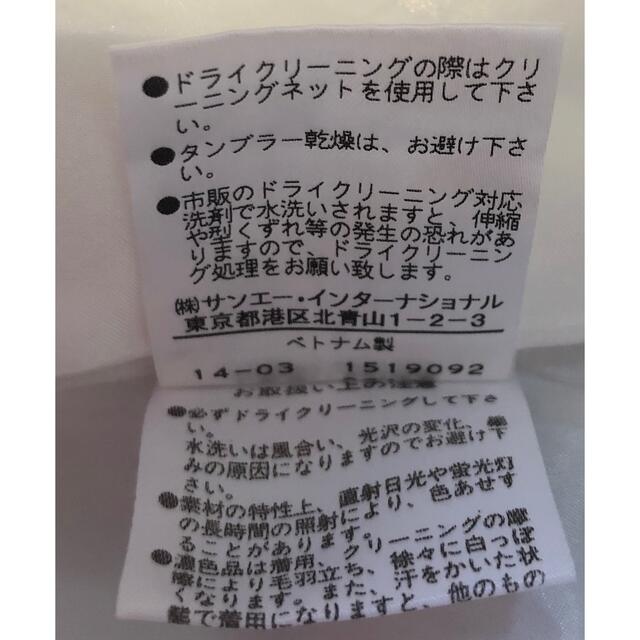 ●ドライクリーニングの際はクリ
ーニングネットを使用して下さ
い。
●タンブラー乾燥は、お避け下さ
い。
●市販のドライクリーニング対応
洗剤で水洗いされますと、伸縮
や型くずれ等の発生の恐れがあ
りますので、ドライクリーニン
グ処理をお願い致します。
㈱サンエー・インターナショナル
東京都港区北青山1-2-3
ベトナム製
14-03 1519092
お取扱い上の注意
●必ずドライクリーニングして下さ
い。
水洗いは風合い、光沢の変化、縮
みの原因になりますのでお避け下
さい。
●素材の特性上、直射日光や蛍光灯
の長時間の照射により、色あせす
ることがあります。
●濃色品は着用、クリーニングの摩
擦により毛羽立ち、徐々に白っぽ
くなります。また、汗をかいた状
態で着用になりますと、他のもの